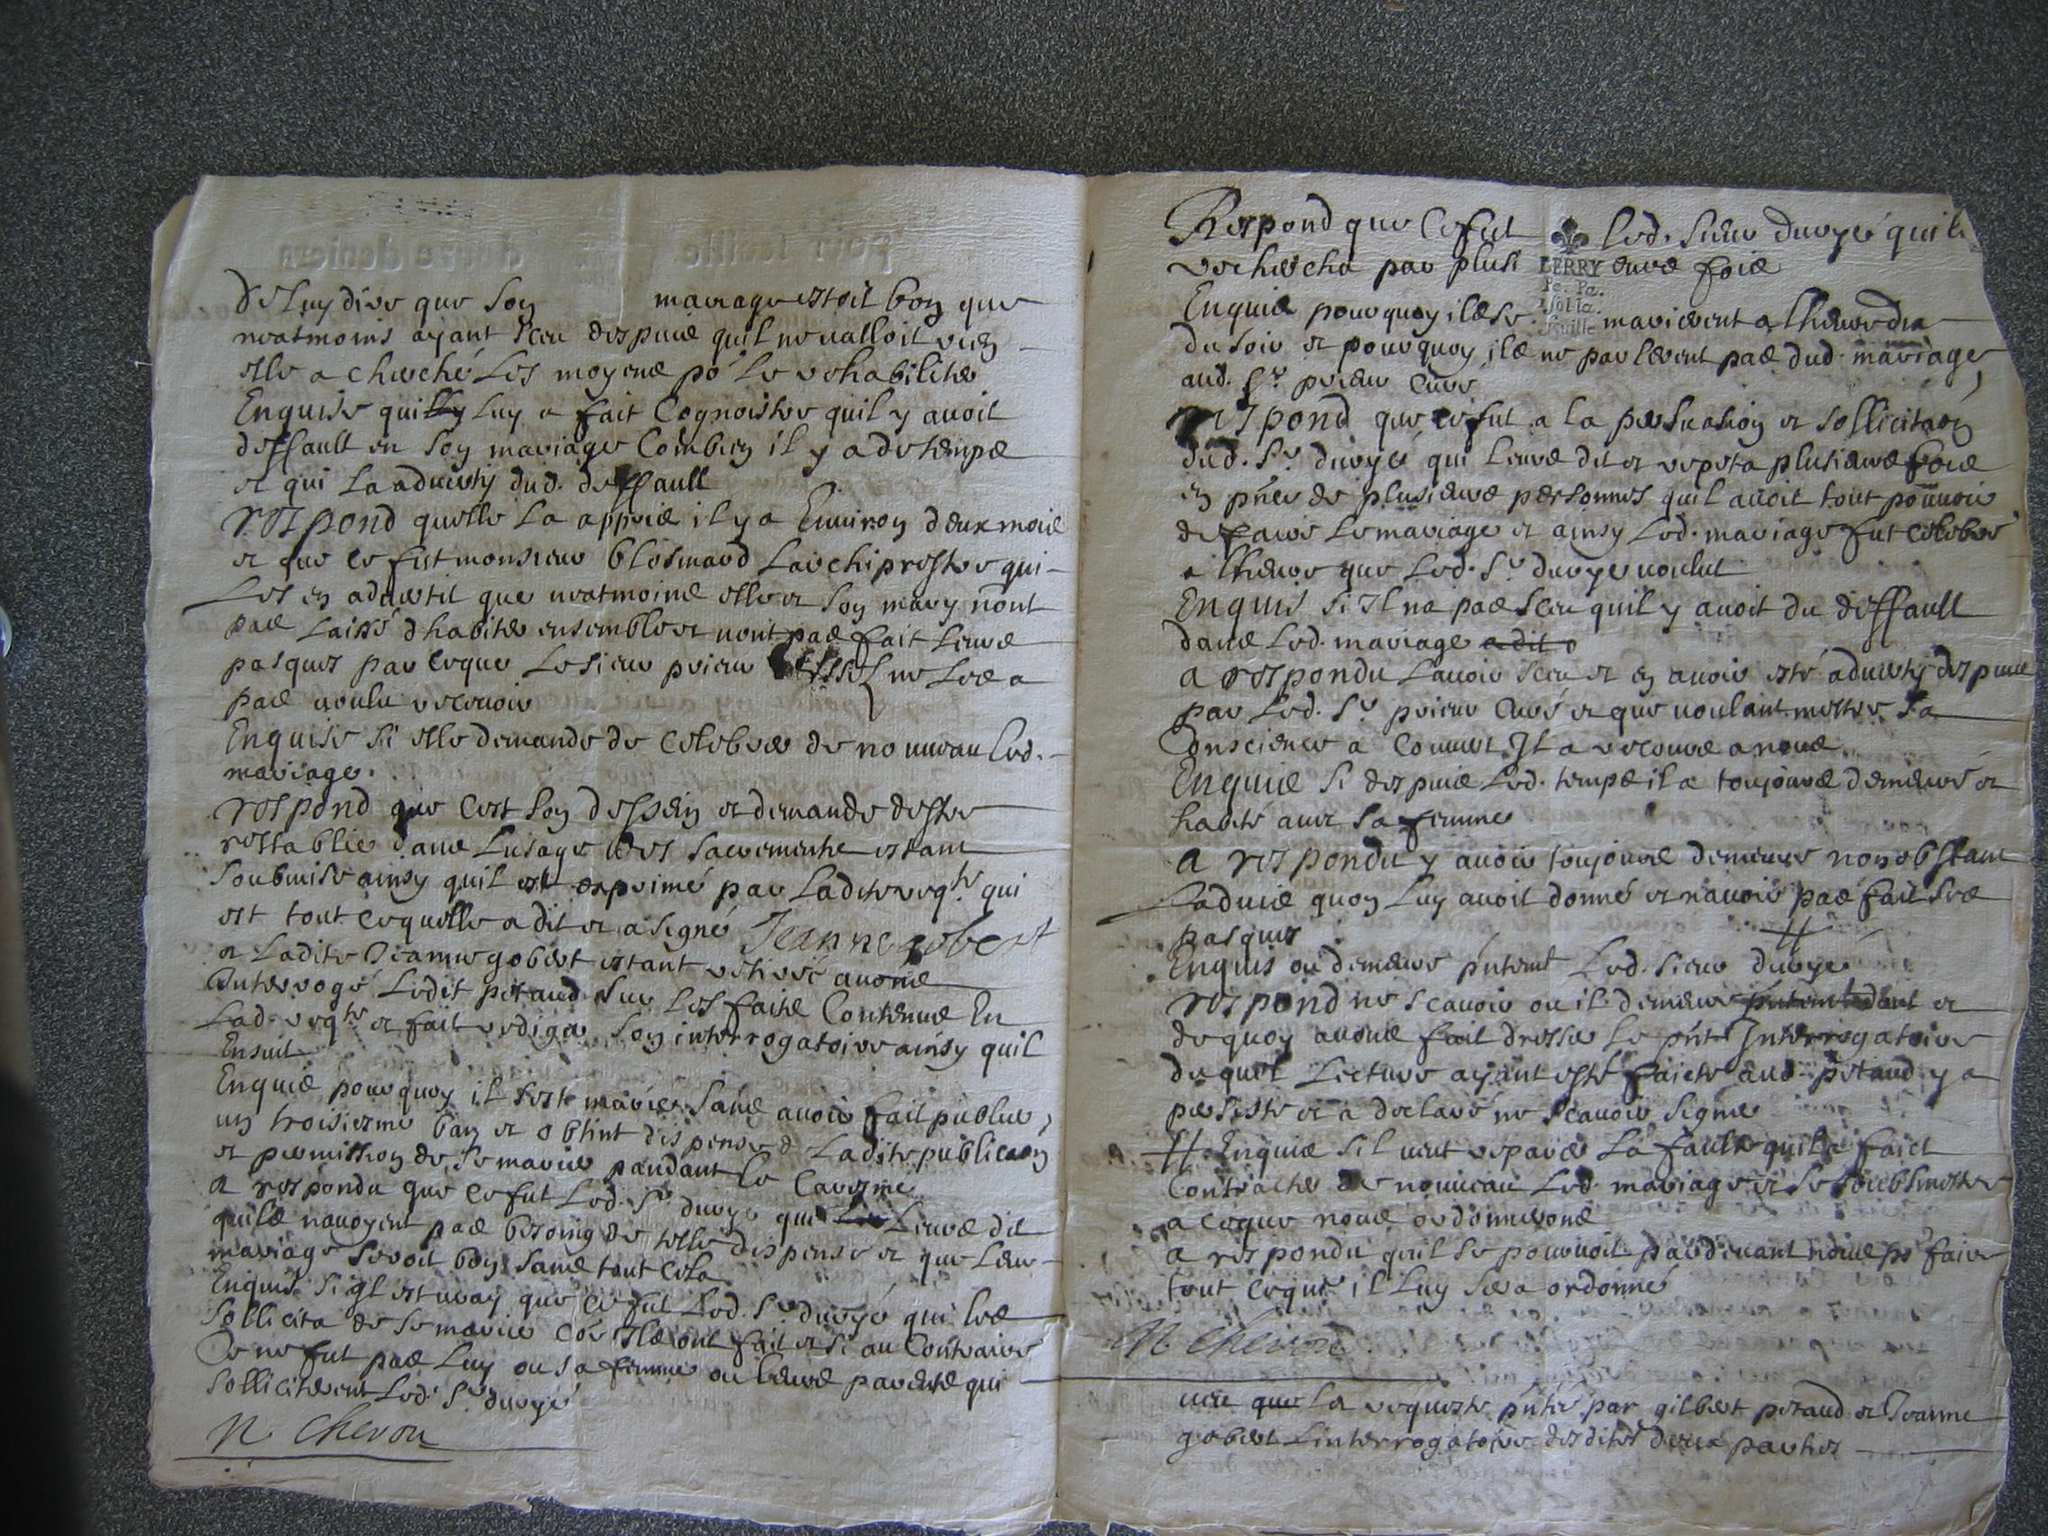 de luy dire que son mariage estoit bon que
neatmoins ayant sceu despuis quil ne valloit rien
elle a cherché les moyens po.r le rehabiliter
Enquise qui luy a fait cognoistre quil y avoit
deffault en son mariage Combien il y a de temps
et qui la adverty dud. deffault
respond quelle la appris il y a Environ deux mois
et que ce fut monsieur blosmard Larchiprestre qui
Les en advertit que neatmoins elle et son mary nont
pas laissé dhabiter ensemble et nont pas fait leurs
pasques par ceque le sieur prieur ne les a
pas voulu recevoir
Enquise si elle demande de celebrer de nouveau led.
mariage.
respond que cest son dessein et demande destre
restablie dans Lusage des sacrements estant
soubmise ainsy quil est exprimé par ladite reqte qui
est tout ce quelle a dit et a signé Jeanne gobert
et Ladite Jeanne gobert estant retirée avons
Interrogé Ledit petaud sur les faits Contenus En
Lad. reqte et fait rediger son interrogatoire ainsy quil
Ensuit
Enquis pourquoy il sest marié sans avoir fait publier
un troisiesme ban et obtint dispense de Ladite publicaon
et permission de se marier pandant le Caresme
a respondu que ce fut Led. Sr duryé qui leurs dit
quils navoyent pas besoing de telle dispense et que leur
mariage seroit bon sans tout cela
Enquis si il est vray que ce fut Led. Sr duryé qui les
sollicita de se marier coe Ils ont fait et si au Contraire
Ce ne fut pas luy ou sa femme ou leurs parents qui
solliciterent Led. Sr duryé
N Cheron
Respond que ce fut led. sieur duryé qui le
rechercha par plusi eurs fois
BERRY
Pa. Pa.
feuille
Enquis pourquoy ils se marierent a lheure du
du soir et pourquoy ils ne parlerent pas dud. mariage
aud. Sr prieur Curé
respond que ce fut a la persuation et sollicitaon
dud. Sr duryé qui leurs dit et repeta plusieurs fois
en pñce de plusieurs personnes quil avoit tout pouvoir
de faire le mariage et ainsy led. mariage fut celebré
a lheure que led. Sr duryé voulut
Enquis si Il na pas sceu quil y avoit du deffault
dans led. mariage a dit
a respondu lavoir sceu et en avoir esté adverty despuis
par led. Sr prieur Curé et que voulant mettre sa
Conscience a couvert Il a recours a nous
Enquis si despuis led. temps il a toujours demeuré et
habité avec sa femme
a respondu y avoir toujours demeuré nonobstant
Ladvis quon luy avoit donné et navoir pas fait ses
pasques #
Enquis ou demeure pñtemt Led. sieur duryé
respond ne scavoir ou il demeure et
de quoy avons fait dresser le pñt Interrogatoire
duquel lecture ayant esté faicte aud. petaud y a
persisté et a declaré ne scavoir signer
# Enquis sil veut reparer La faulte quil a faict
Contracter de nouveau led. mariage et se soubsmettre
a ceque nous ordonnerons
a respondu quil se pourvoit pardevant nous por faire
tout ceque il luy sera ordonné
N Cheron
veu que la requeste pñtée par gilbert petaud et Jeanne
gobert Linterrogatoire desdites deux parties